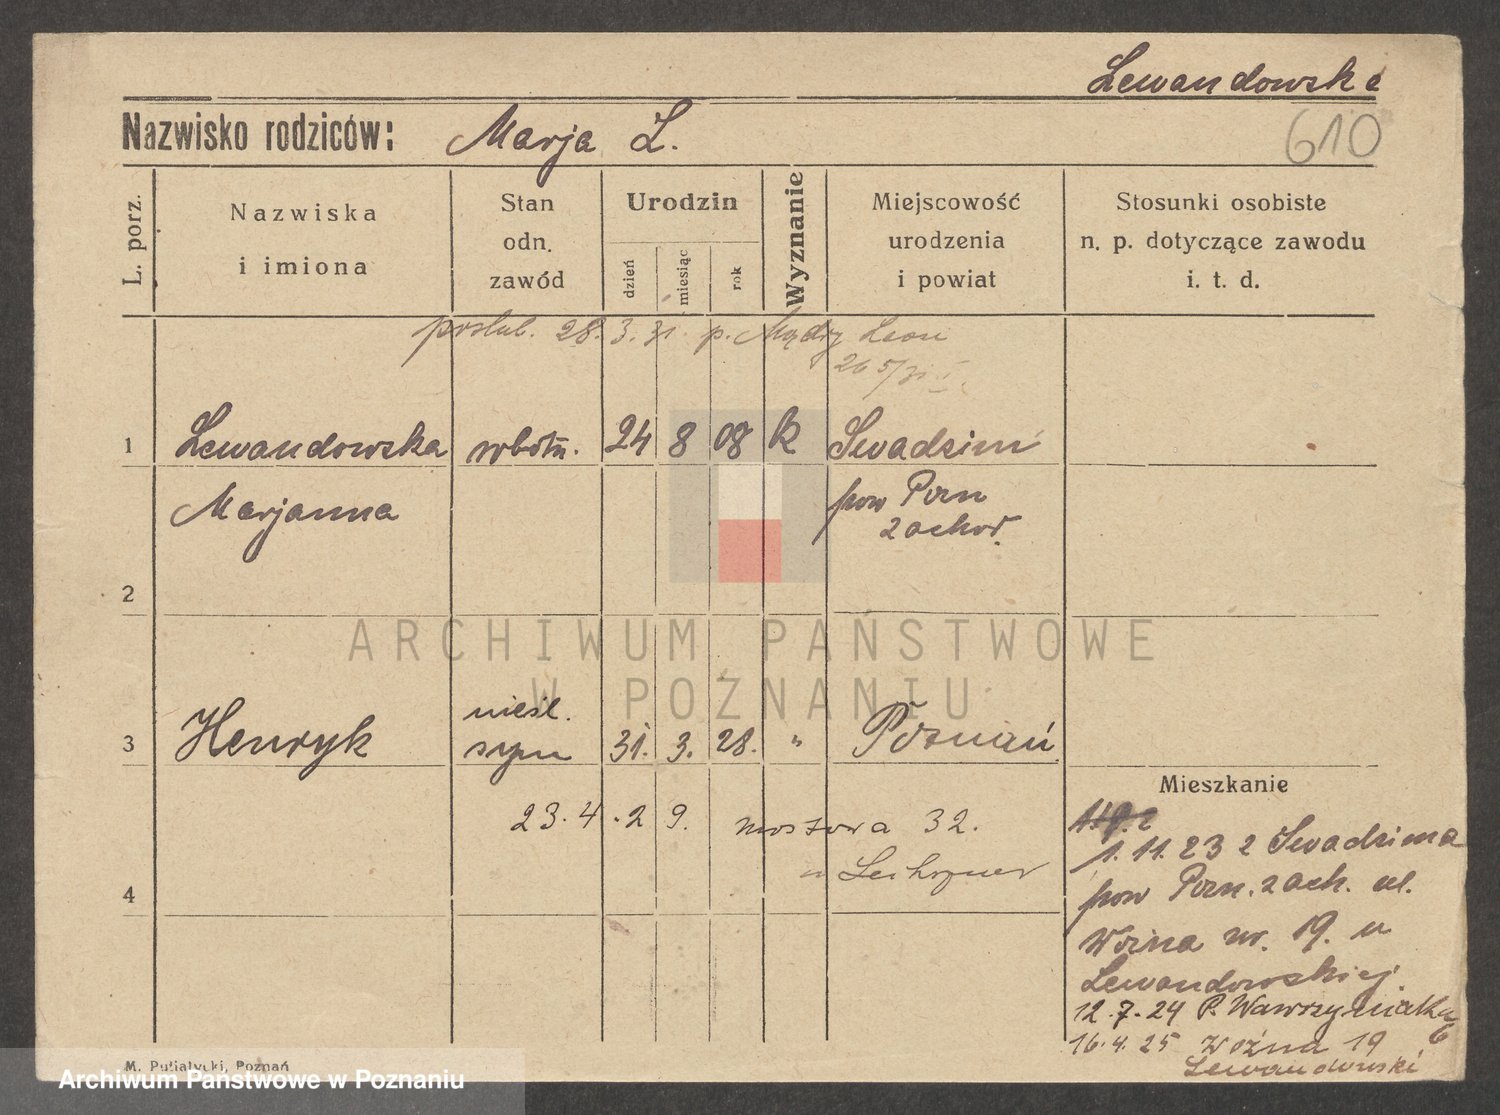 Lewandowska
Nazwisko rodziców: Marja L.
610
L. porz.
Nazwiska
i imiona
Stan
odn.
zawód
Urodzin
dzień
miesiąc
rok
Wyznanie
Miejscowość
urodzenia
i powiat
Stosunki osobiste
n. p. dotyczące zawodu
i. t. d.
poślub. 28. 3. 31. p. Mądry Leon
26 5/31
1 Lewandowska robotn. 24 8 08 k Swadzim
Marjanna pow Pozn
zachod.
2
ARCHIWUM PAŃSTWOWE
W POZNANIU
nieśl.
3 Henryk syn 31. 3. 28. " Poznań
Mieszkanie
23. 4. 29. mostowa 32.
1. 11. 23 z Swadzima
4
pow Pozn. zach. ul.
Woźna nr. 19. u
Lewandowskiej
12. 7. 24 P. Wawrzyniaka
6
16. 4. 25 Woźna 19
Lewandowski
M. Putiatycki, Poznań
Archiwum Państwowe w Poznaniu